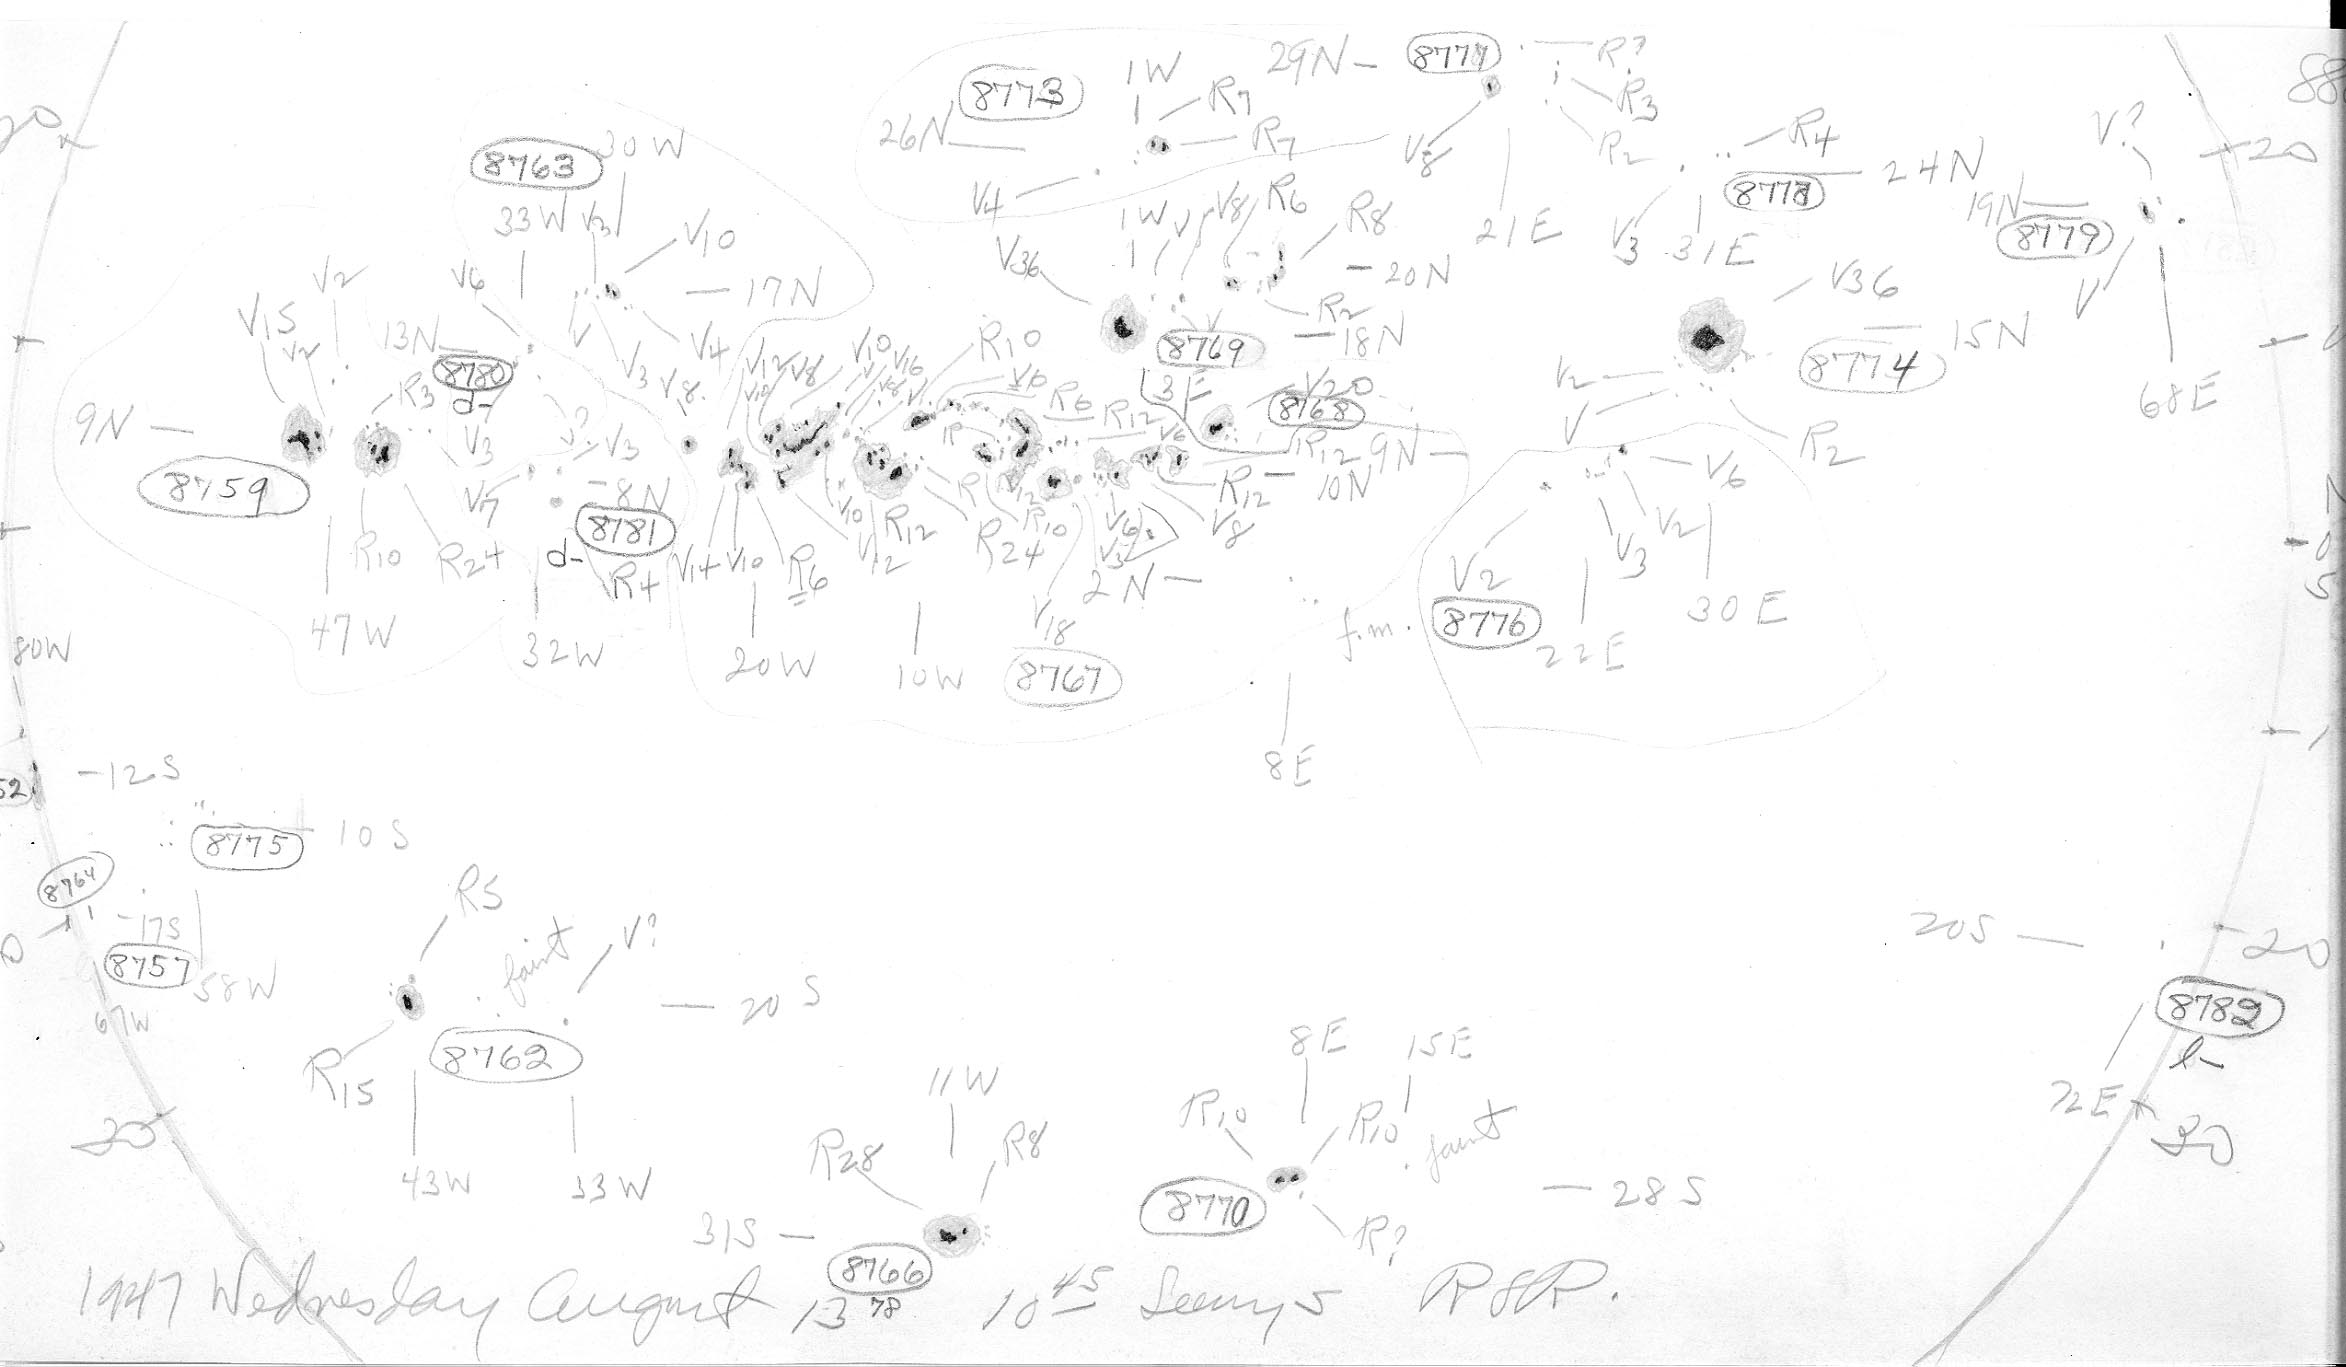 29N
8777
R?
8773
1W
R7
R3
20
26N
R7
V8
R2
R4
V?
20
8763
30W
24N
V4
8778
19N
33W
V3
V10
1W
V
V8
R6
R8
21E
V3
31E
8779
V2
V6
17N
V36
20N
V36
V
V15
V2
13N
V
V3
V4
R2
18N
15N
68E
8780
d-
R3
V8
V12
V10
V8
V10
V16
R10
8769
8774
V6
3E
V20
V2
9N
V3
V?
V3
R6
R12
8768
V
R2
8759
V7
8N
R
V6
R12
9N
V6
R12
10N
8781
V10
R12
R
V12
R10
V6
V8
R10
R24
d-
R4
V14
V10
R6
V12
R24
V3
V2
V3
V2
2N
8776
30E
47W
V18
f.m.
22E
80W
32W
20W
10W
8767
8E
12S
52
8775
10S
8764
R5
17S
faint
V?
20S
20
8757
58W
20S
67W
8782
l-
R15
8762
8E
15E
72E
30
11W
R10
R10
faint
43W
33W
R28
R8
28S
8770
31S
R?
8766
1947 Wednesday August 13 78 10 45 Seeing 5 RSR.